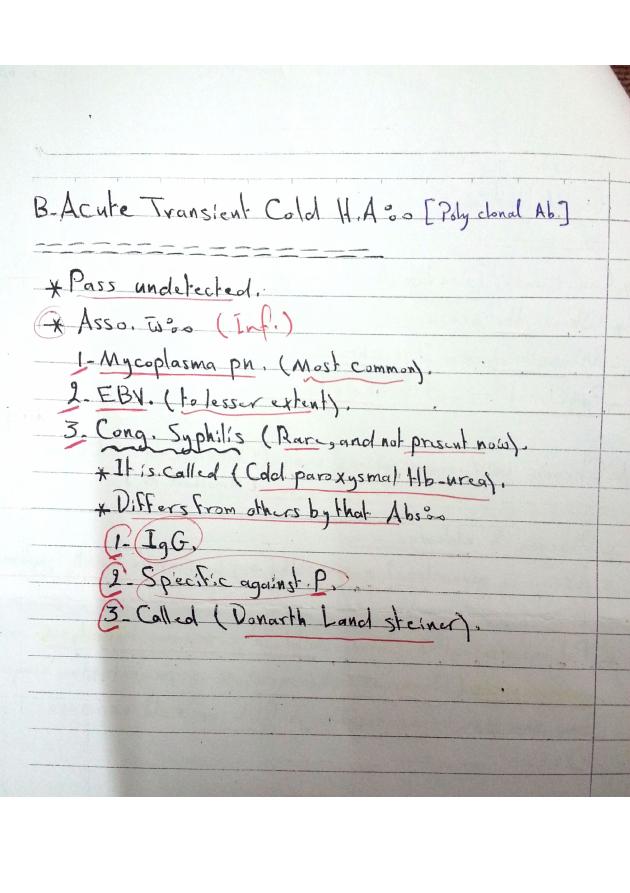 B-Acute Transient Cold H.A:- [Poly clonal Ab.]
* Pass undetected.
* Asso. w̄:- (Inf.)
1- Mycoplasma pn. (Most common).
2- EBV. (to lesser extent).
3- Cong. Syphilis (Rare, and not present now).
* It is called (Cold paroxysmal Hb-urea).
* Differs from others by that Abs:-
1- IgG.
2- Specific against P.
3- Called (Donarth Land steiner).